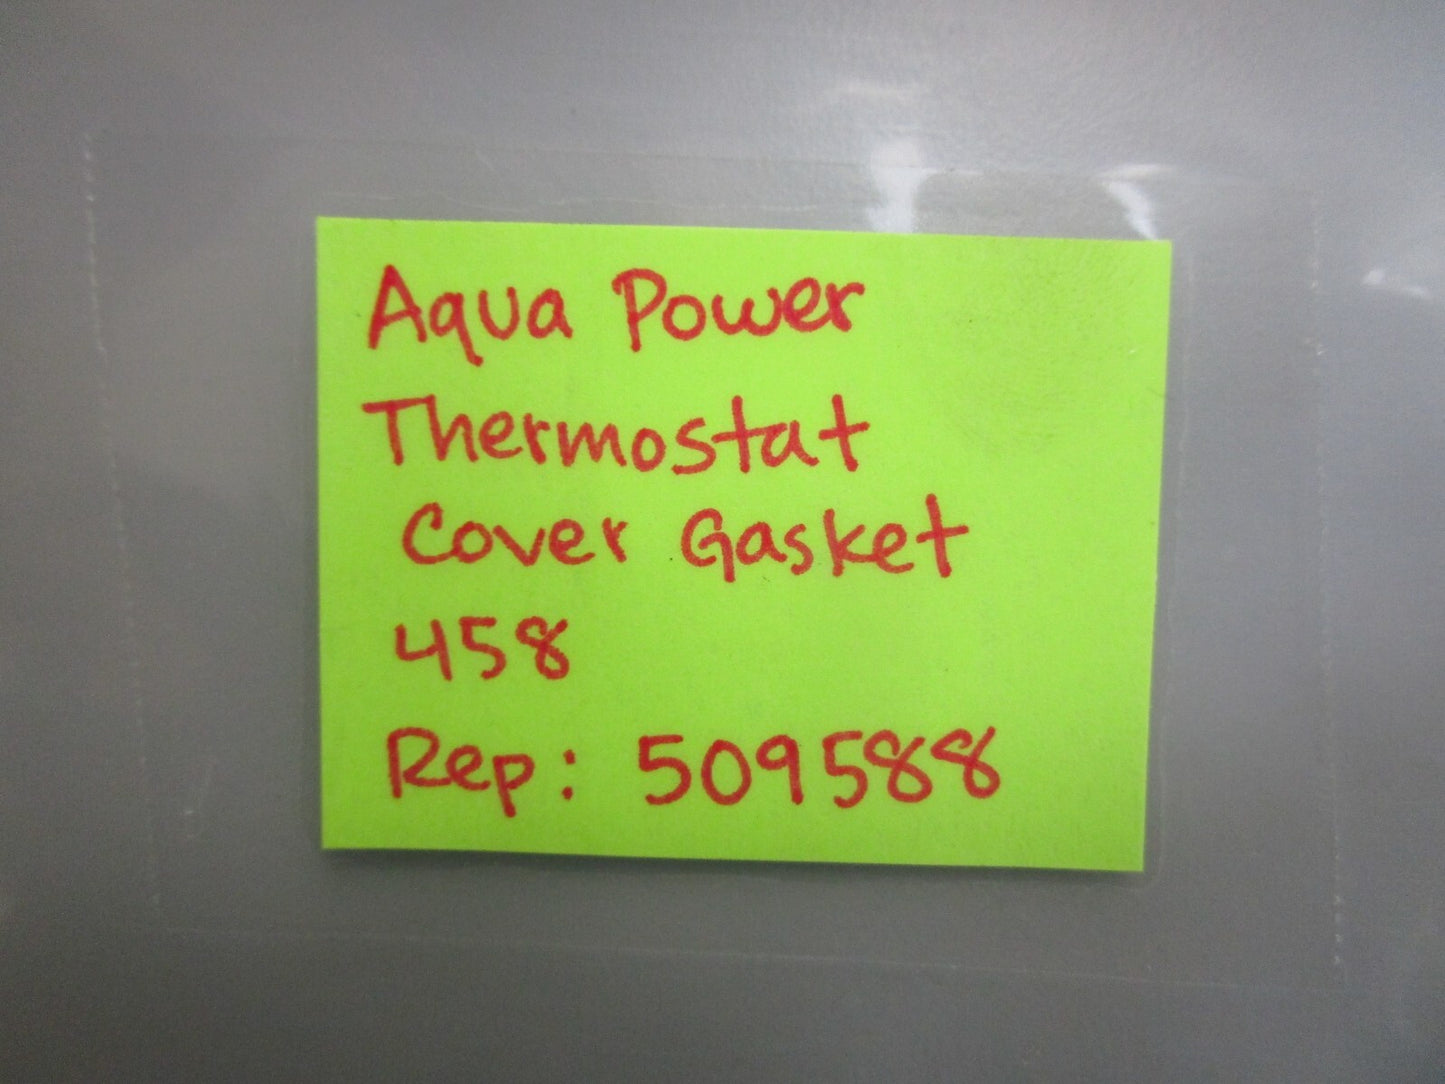 Aqua Power
Thermostat
Cover Gasket
458
Rep: 509588